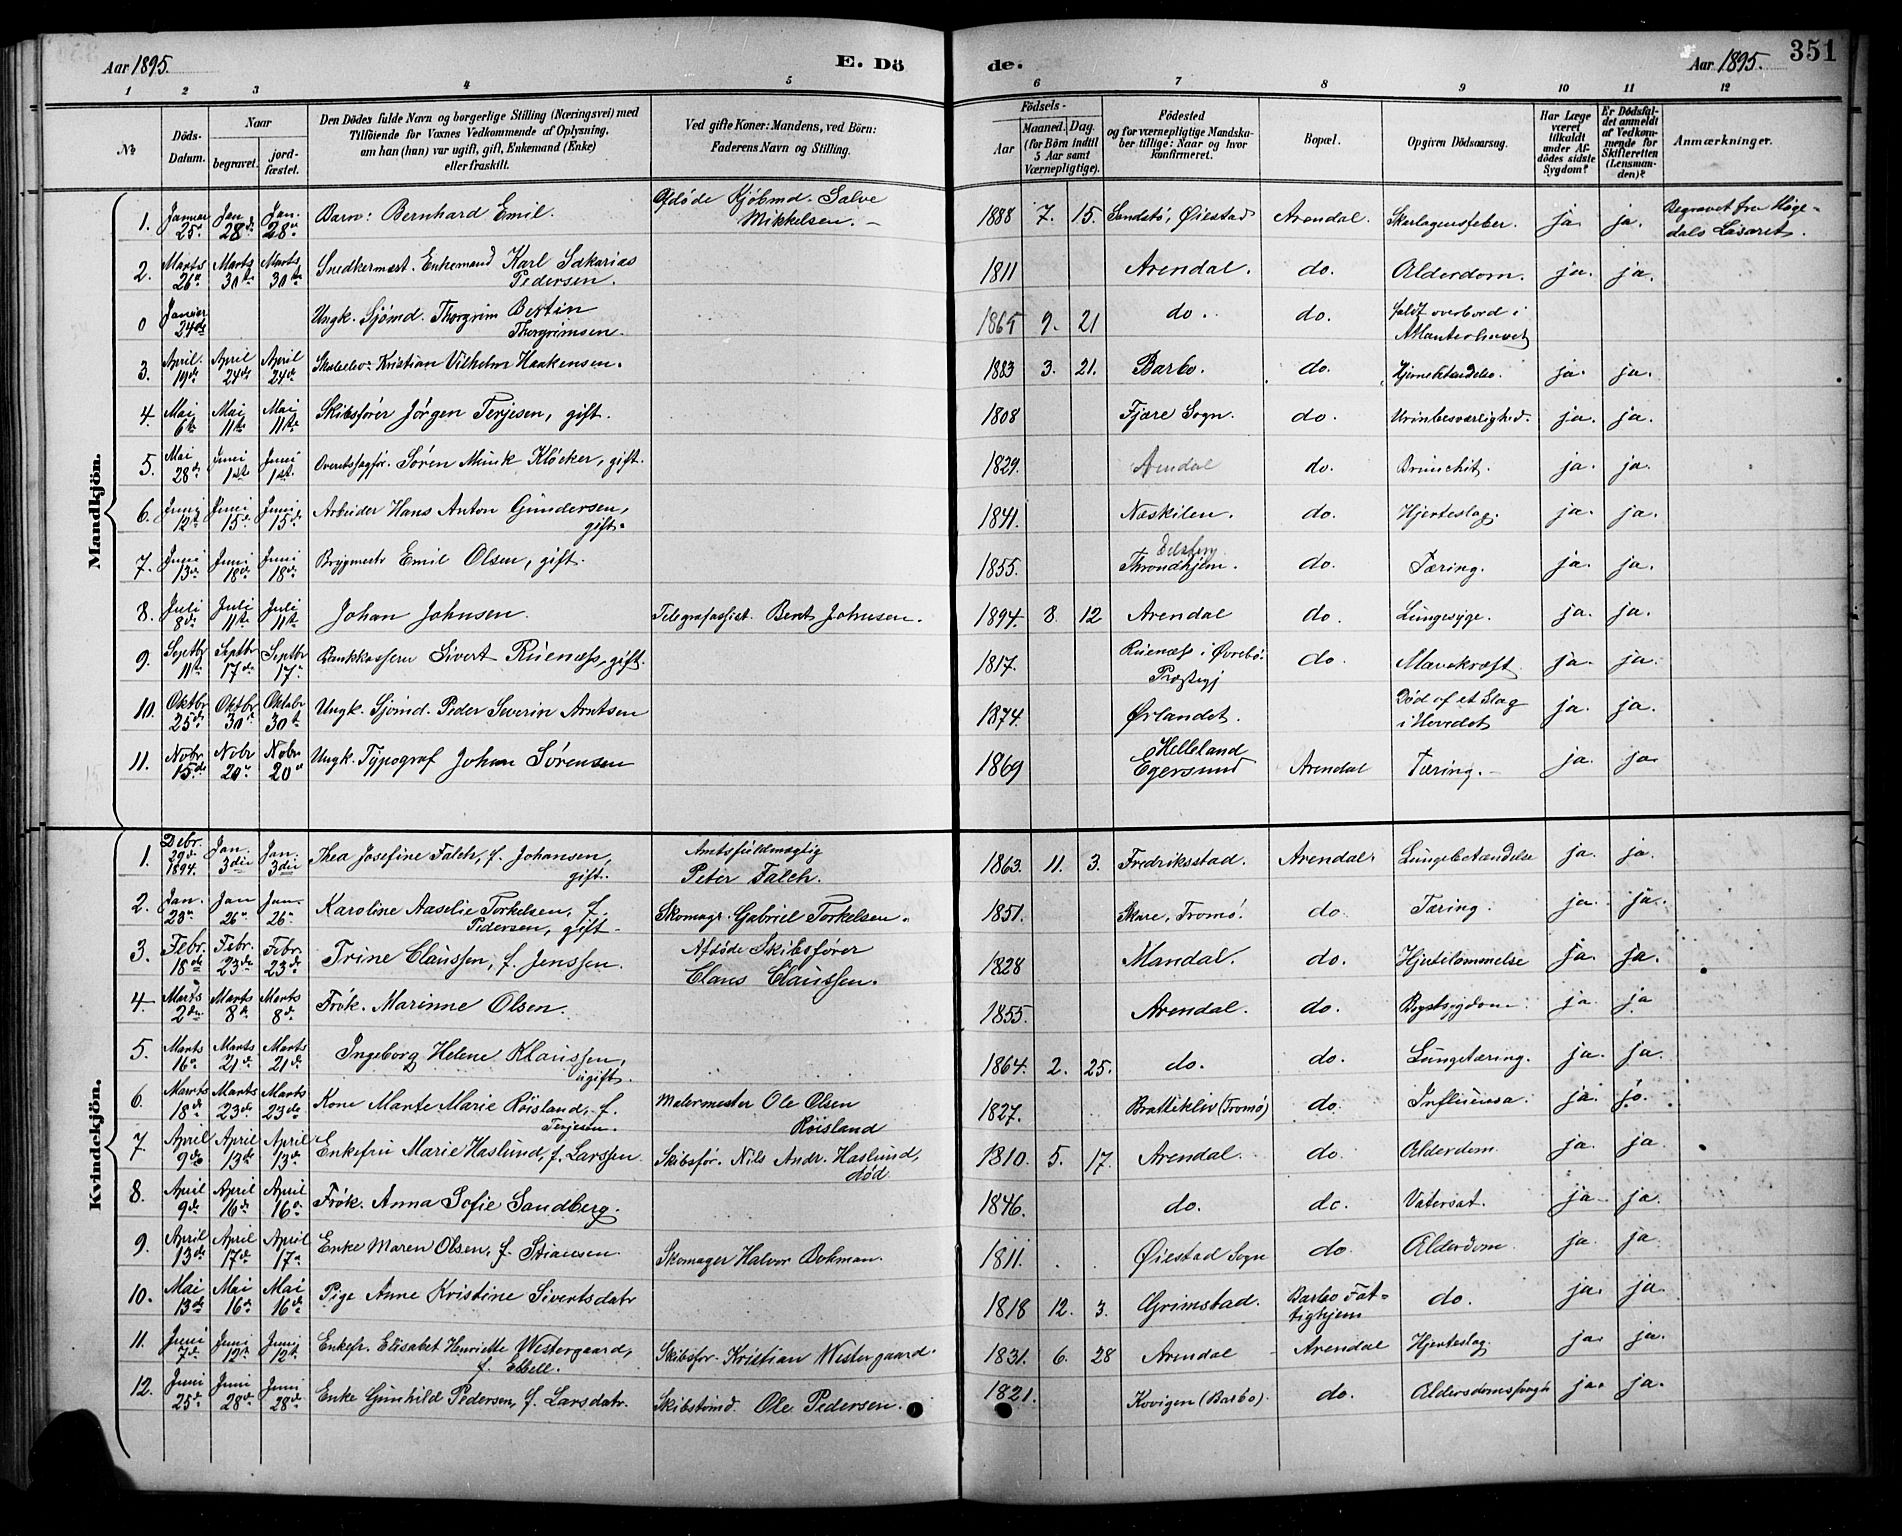 Aar 1895. E. Dö de. Aar 1895. 351
1 2 3 4 5 6 7 8 9 10 11 12
No
Döds-Datum.
Naar
begravet.
jord-fæstet.
Den Dödes fulde Navn og borgerlige Stilling (Næringsvei) med
Tilföiende for Voxnes Vedkommende af Oplysning,
om han (hun) var ugift, gift, Enkemand (Enke)
eller fraskilt.
Ved gifte Koner: Mandens, ved Börn:
Faderens Navn og Stilling.
Födsels-
Aar
Maaned. Dag.
(for Börn indtil
5 Aar samt
Værnepligtige).
Födested
og for værnepligtige Mandska-
ber tillige: Naar og hvor
konfirmeret.
Bopæl.
Opgiven Dödsaarsag.
Har Læge
været
tilkaldt
under Af-
dödes sidste
Sygdom?
Er Dödsfal-
det anmeldt
af Vedkom-
mende for
Skifteretten
(Lensman-
den)?
Anmærkninger.
Mandkjön.
1. Januar 25 Jan 28de Jan. 28 Barn: Bernhard Emil. Afdöde Kjöbmd. Salve Mikkelsen. 1888 7. 15. Sandstö, Øiestad Arendal. Skarlagensfeber. ja ja. Begravet fra Høgedals Lasaret.
2. Marts 26 Marts 30te Marts 30te Snedkermest. Enkemand Karl Sakarias Pedersen. 1811 Arendal. do. Alderdom. ja ja.
0 Januar 24de Ungk. Sjömd. Thorgrim Bertin Thorgrimsen. 1865 9. 21 do. do. faldt overbord i Atlanterhavet
3. April 19de April 24de April 24de Skoleelev: Kristian Vilhelm Haakensen. 1883 3. 21. Barbo. do. Hjernebetændelse. ja. ja.
4. Mai 6te Mai 11te Mai 11te Skibsfører Jørgen Terjesen, gift. 1808 Fjære Sogn. do. Urinbesværlighed. ja. ja.
5. Mai 28de Juni 1st Juni 1st. Overetssagfør. Søren Munk Kløcker, gift. 1829. Arendal do. Bronchit. ja. ja.
6. Juni 12t Juni 15de Juni 15de Arbeider Hans Anton Gundersen, gift. 1841. Næskilen. do. Hjerteslag. ja. ja.
7. Juni 13de Juni 18de Juni 18de Brygmestr Emil Olsen, gift. 1855. Throndhjem. do. Tæring. ja. ja.
8. Juli 8de Juli 11te Juli 11te Johan Johnsen. Telegrafassist. Bent Johnsen. 1894. 8. 12 Arendal do. Lungesyge. ja. ja.
9. Septbr 11te Septbr 17de Septbr 17de Bankkasserer Sivert Rüenæss, gift. 1817. Rüenæss i Øvrebö Præstegj do. Mavekræft. ja. ja.
10. Oktbr 25de Oktbr 30te Oktobr 30t Ungk. Sjömd. Peder Severin Arntsen 1874. Ørlandet. Död af et Slag i Hovedet ja. ja.
11. Nobr. 15de Nobr 20de Nobr. 20de Ungk. Typograf Johan Sörensen 1869 Helleland Egersund Arendal Tæring. ja. ja.
Kvindekjön.
1. Debr. 29de 1894. Jan. 3die Jan. 3die Thea Josefine Falch, f. Johansen, gift. Amtsfuldmægtig Peter Falch. 1863. 11. 3. Fredriksstad. Arendal. Lungebetændelse ja. ja.
2. Jan. 23de Jan 26de Jan. 26de Karoline Aaselie Torkelsen, f. Pedersen, gift. Skomagr. Gabriel Torkelsen. 1851. Skare, Tromö. do. Tæring. ja. ja.
3. Febr. 18de Febr. 23de Febr. 23de Trine Claussen, f. Jenssen. Afdöde Skibsfører Claus Claussen. 1828 Mandal. do. Hjertelammelse ja. ja.
4. Marts 2den Marts 8de Marts 8de Frök. Marinne Olsen. 1855. Arendal. do. Brystsygdom. ja. ja
5. Marts 16de Marts 21de Marts 21de Ingeborg Helene Klaussen, ugift. 1864. 2. 25. do. do. Lungetæring. ja. ja.
6. Marts 18de Marts 23de Marts 23de Kone Marte Marie Röisland, f. Terjesen. Malermester Ole Olsen Röisland 1827. Brattekliv (Tromö) do. Influensa. ja. ja.
7. April 9de April 13de April 13de Enkefru Marie Haslund, f. Larssen. Skibsför. Nils Andr. Haslund, död 1810. 5. 17. Arendal. do. Alderdom. ja. ja.
8. April 9de April 16de April 16de Frök. Anna Sofie Sandberg. 1846. do. do. Vatersot. ja. ja.
9. April 13de April 17de April 17de Enke Maren Olsen, f. Stiansen. Skomager Halvor Bokman. 1811. Øiestad Sogn do. Alderdom. ja. ja.
10. Mai 13de Mai 16de Mai 16de Pige Anne Kristine Sivertsdatr 1818 12. 3. Grimstad. Barbo Fattighjem do. ja. ja.
11. Juni 7de Juni 12t Juni 12t Enkefr. Elisabet Henriette Westergaard, f. Ebbell. Skibsför. Kristian Westergaard. 1831. 6. 28 Arendal Arendal Hjerteslag. ja. ja.
12. Juni 25de Juni 28de Juni 28de Enke Gunhild Pedersen, f. Larsdatr. Skibstömd. Ole Pedersen. 1821. Kovigen (Barbo). do. ja. ja.